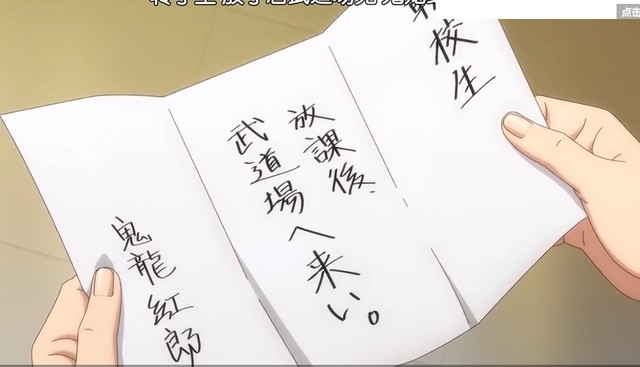 点击
校生
放課後、
武道場へ来い。
鬼龍紅郎